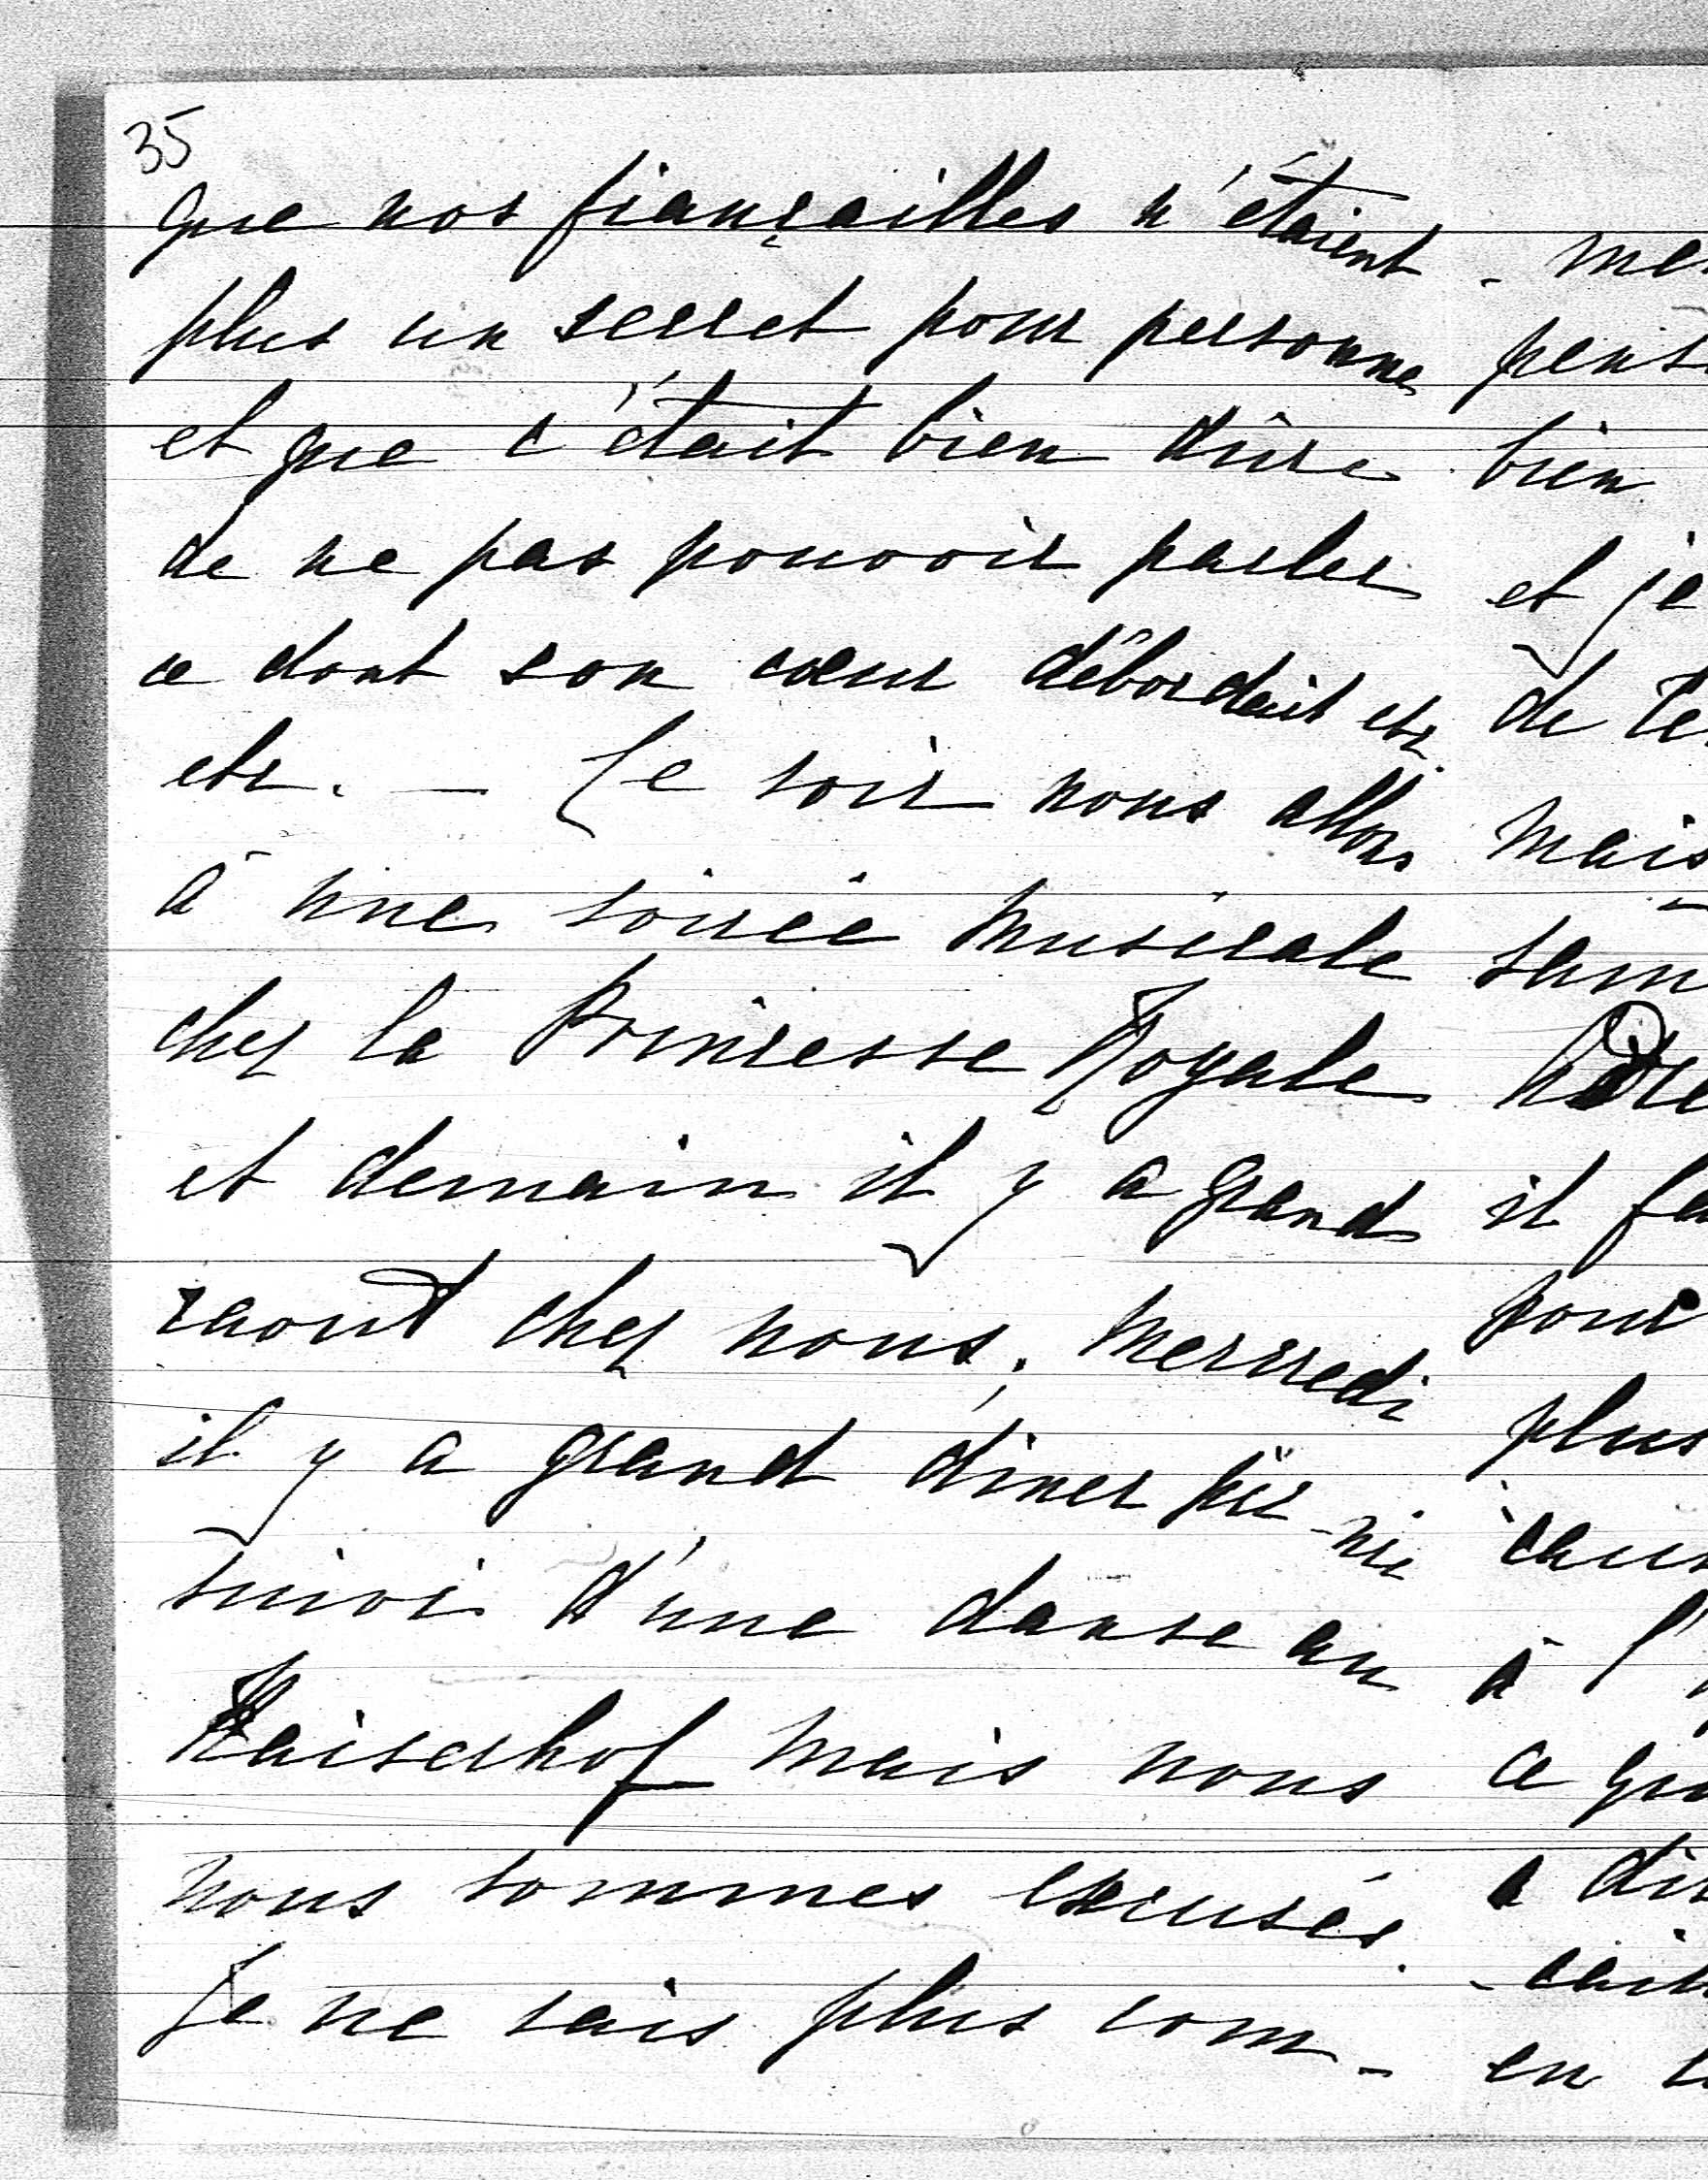 35
que nos fiançailles n'étaient
plus un secret pour personne
et que c'était bien dûre
de ne pas pouvoir parler
ce dont son cœur débordait etc
etc. — Ce soir nous allons
à une soirée musicale
chez la Princesse Royale
et demain il y a grand
raout chez nous; mercredi
il y a grand dîner pic-nic
suivi d'une danse au
Kaiserhof mais nous
nous sommes excusés.
Je ne sais plus com-
bien
et je
de
mais
il
pour
plus
à l'
ce
en